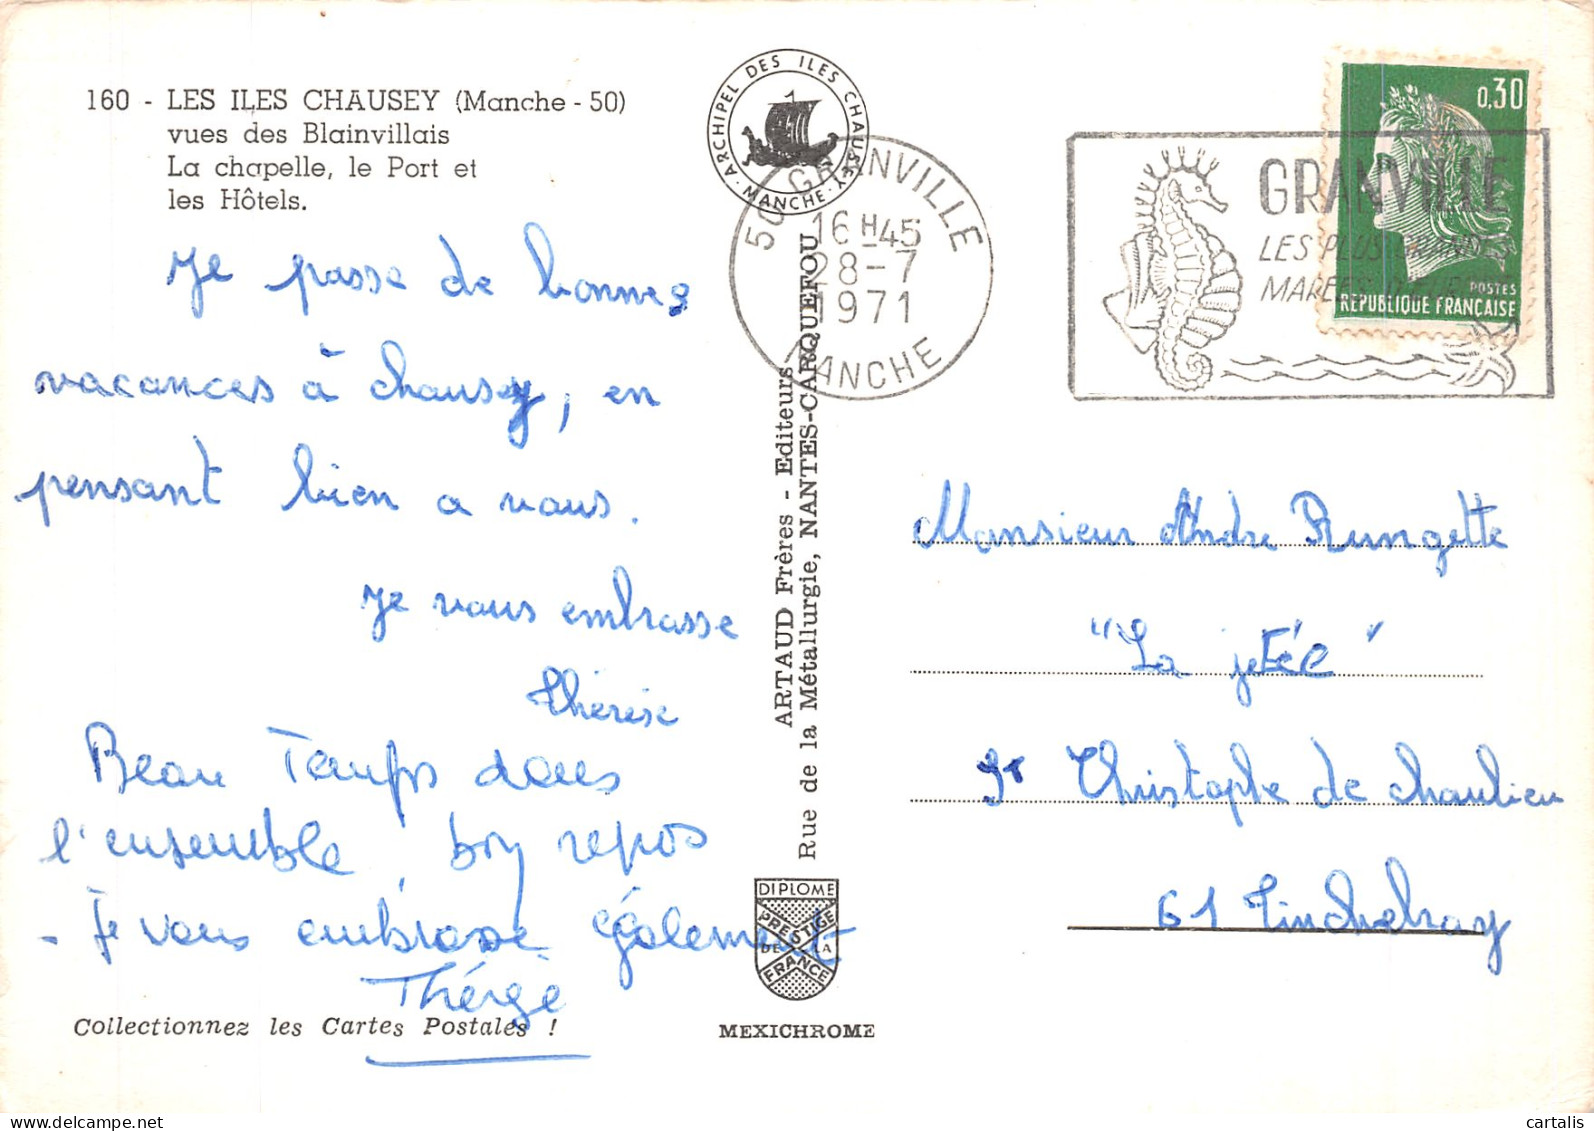 160 - LES ILES CHAUSEY (Manche - 50)
vues des Blainvillais
La chapelle, le Port et
les Hôtels.
Je passe de bonnes
vacances à chausey, en
pensant bien a vous.
Je vous embrasse
Thérèse
Beau Temps dans
l'ensemble, bon repos
- Je vous embrasse également
Collectionnez les Cartes Postales !
ARCHIPEL DES ILES CHAUSEY · MANCHE ·
ARTAUD Frères - Editeurs
Rue de la Métallurgie, NANTES-CARQUEFOU
DIPLOME
PRESTIGE
DE LA
FRANCE
MEXICHROME
50 GRANVILLE
16H45
28-7
1971
MANCHE
GRANVILLE
LES PLUS GRANDES
MARÉES D'EUROPE
0,30
POSTES
REPUBLIQUE FRANÇAISE
Monsieur André Rungette
"La jetée"
St Christophe de chaulieu
61 Tinchebray
cartalis
www.delcampe.net